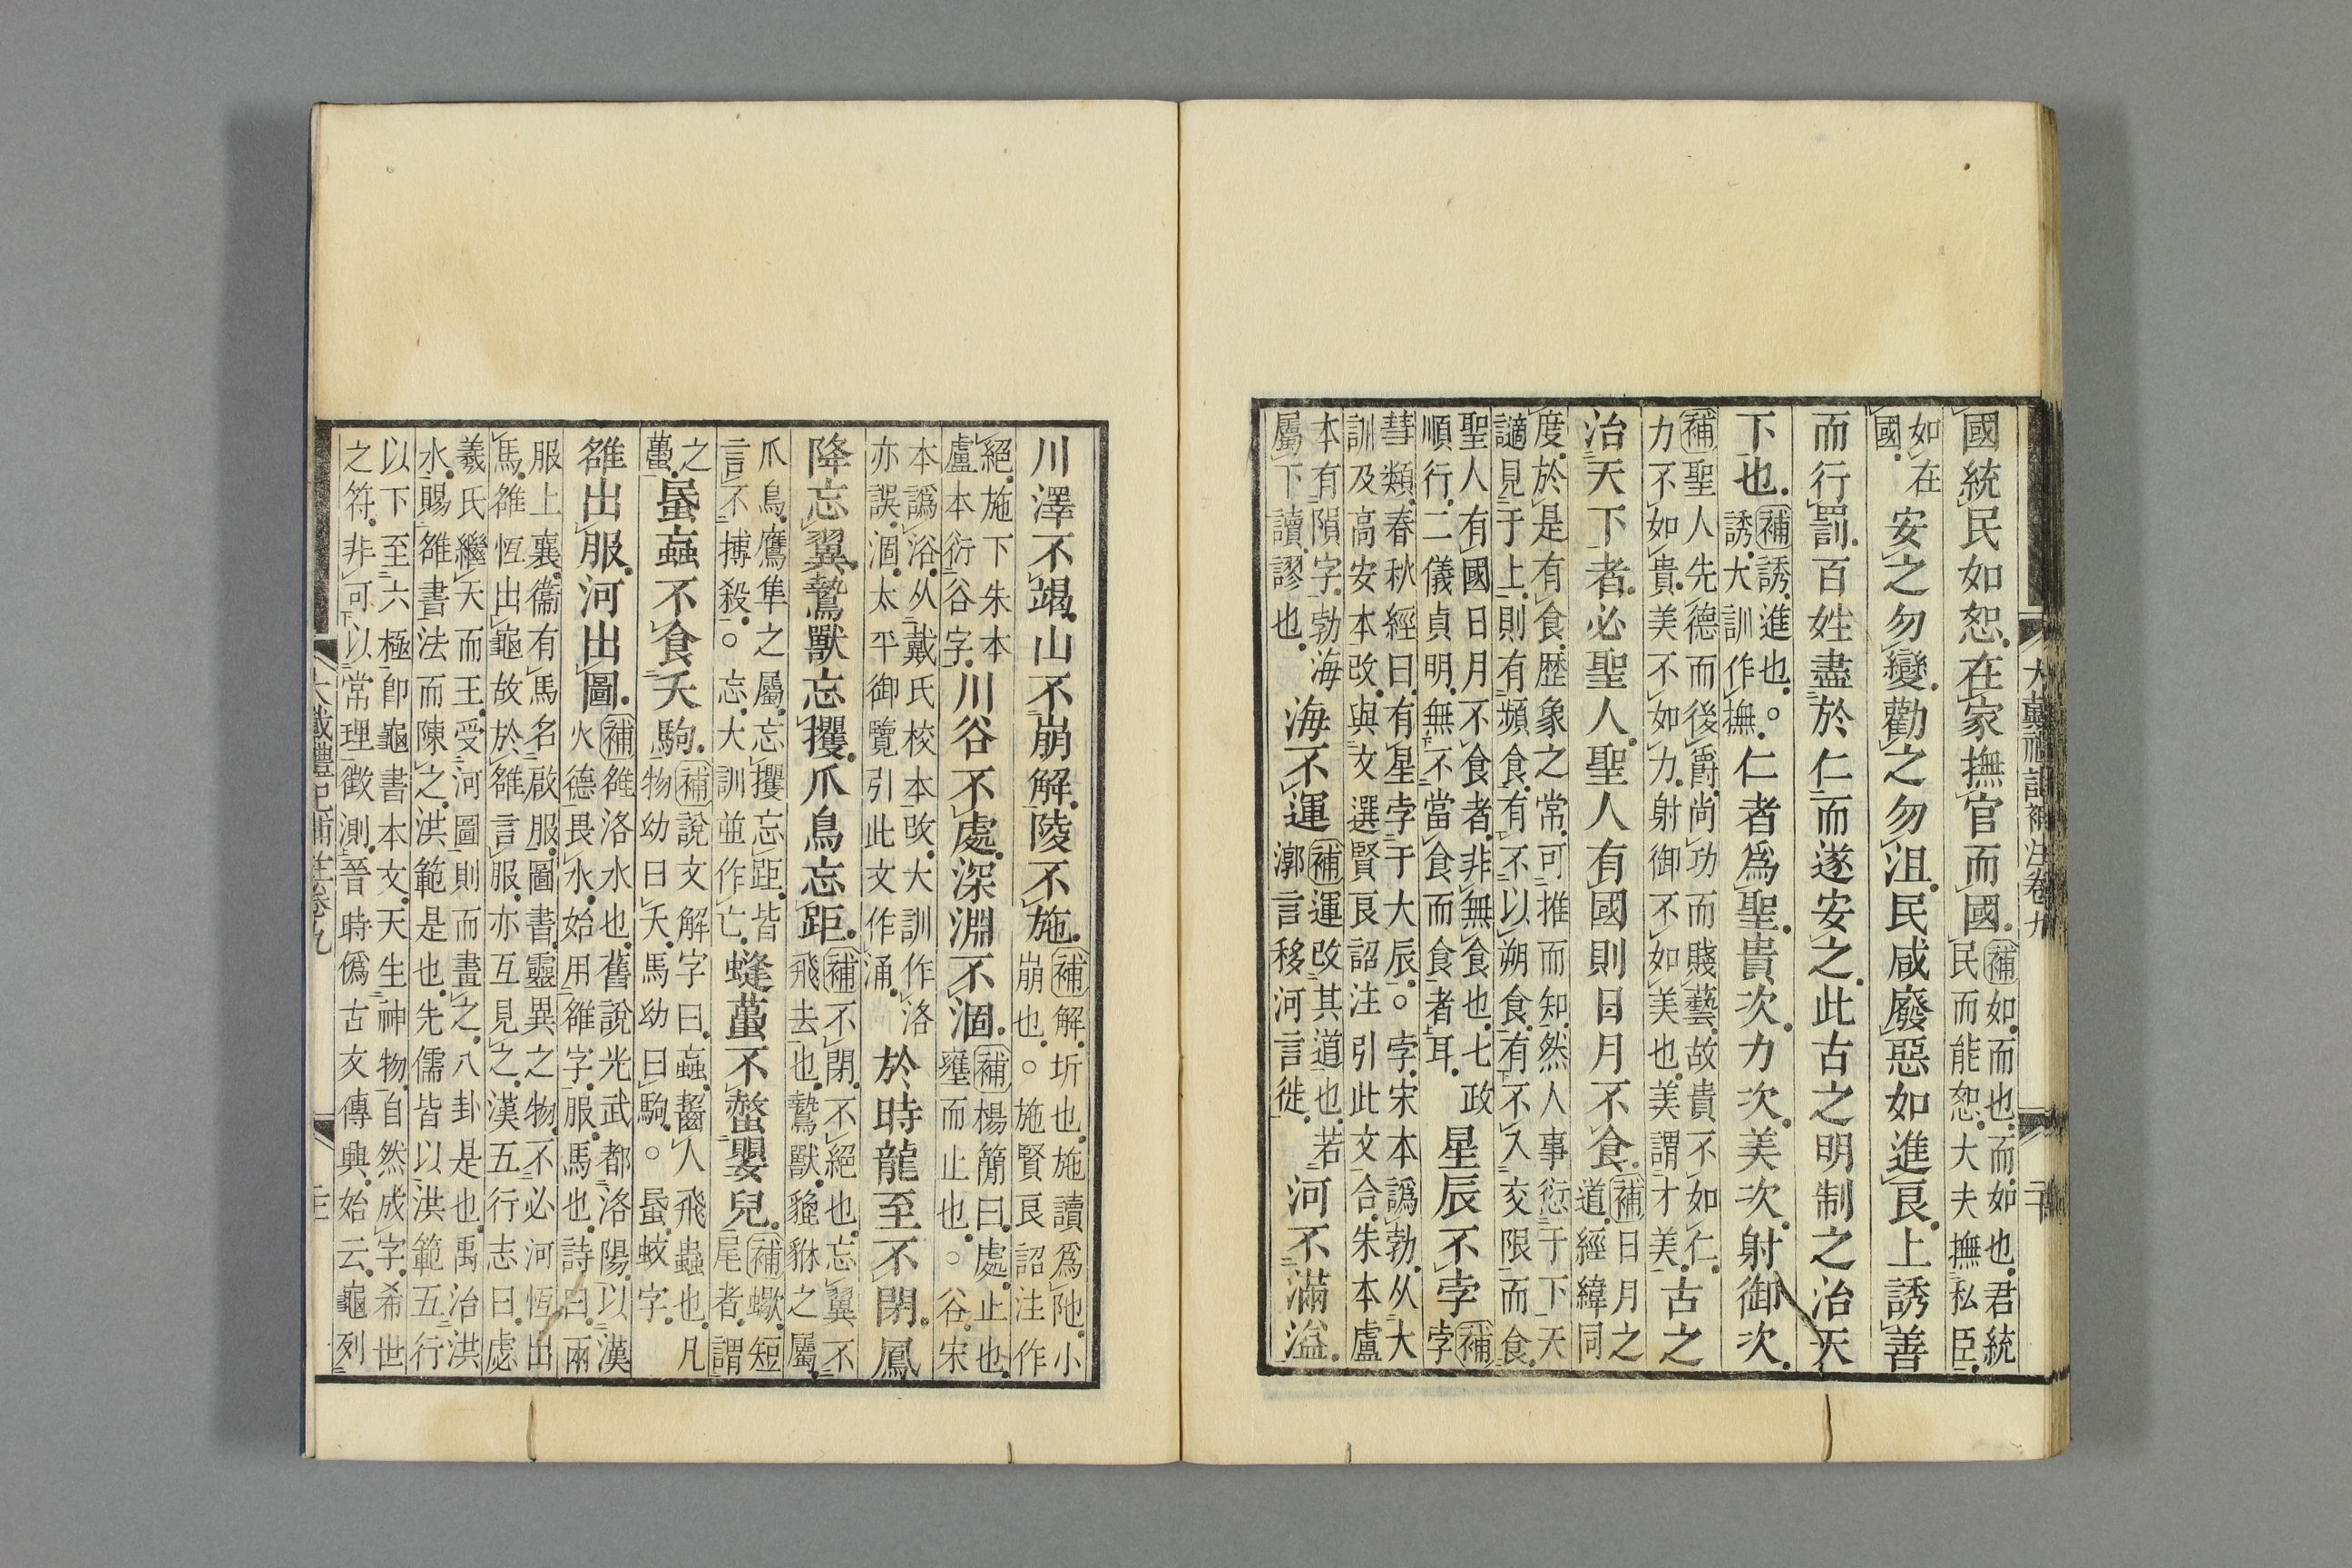 大戴禮記補注卷九
國統民如恕在家撫官而國補如而也而如也君統
民而能恕大夫撫私臣
如在
國安之勿變勸之勿沮民咸廢惡如進良上誘善
而行罰百姓盡於仁而遂安之此古之明制之治天
下也補誘進也○
誘大訓作撫仁者爲聖貴次力次美次射御次
補聖人先德而後爵尚功而賤藝故貴不如仁
力不如貴美不如力射御不如美也美謂才美古之
治天下者必聖人聖人有國則日月不食補日月之
道經緯同
度於是有食歷象之常可推而知然人事愆于下天
讁見于上則有頻食有不以朔食有不入交限而食
聖人有國日月不食者非無食也七政
順行二儀貞明無不當食而食者耳星辰不孛補
孛
彗類春秋經曰有星孛于大辰○孛宋本譌勃从大
訓及高安本改與文選賢良詔注引此文合朱本盧
本有隕字勃海
屬下讀謬也海不運補運改其道也若
漷言移河言徙河不滿溢
川澤不竭山不崩解陵不施補解圻也施讀爲阤小
崩也○施賢良詔注作
絕施下朱本
盧本衍谷字川谷不處深淵不涸補楊簡曰處止也
壅而止也○谷宋
本譌浴从戴氏校本改大訓作洛
亦誤涸太平御覽引此文作涌於時龍至不閉鳳
降忘翼鷙獸忘攫爪鳥忘距補不閉不絕也忘翼不
飛去也鷙獸貔貅之屬
爪鳥鷹隼之屬忘攫忘距皆
言不搏殺○忘大訓並作亡蠭蠆不螫嬰兒補蠍短
尾者謂
之
蠆蟁蝱不食夭駒補說文解字曰蝱齧人飛蟲也凡
物幼曰夭馬幼曰駒○蟁蚊字
雒出服河出圖補雒洛水也舊說光武都洛陽以漢
火德畏水始用雒字服馬也詩曰兩
服上襄衞有馬名啟服圖書靈異之物不必河恆出
馬雒恆出龜故於雒言服亦互見之漢五行志曰虙
羲氏繼天而王受河圖則而畫之八卦是也禹治洪
水賜雒書法而陳之洪範是也先儒皆以洪範五行
以下至六極卽龜書本文天生神物自然成字希世
之符非可以常理徵測晉時僞古文傳興始云龜列
大戴禮記補注卷九